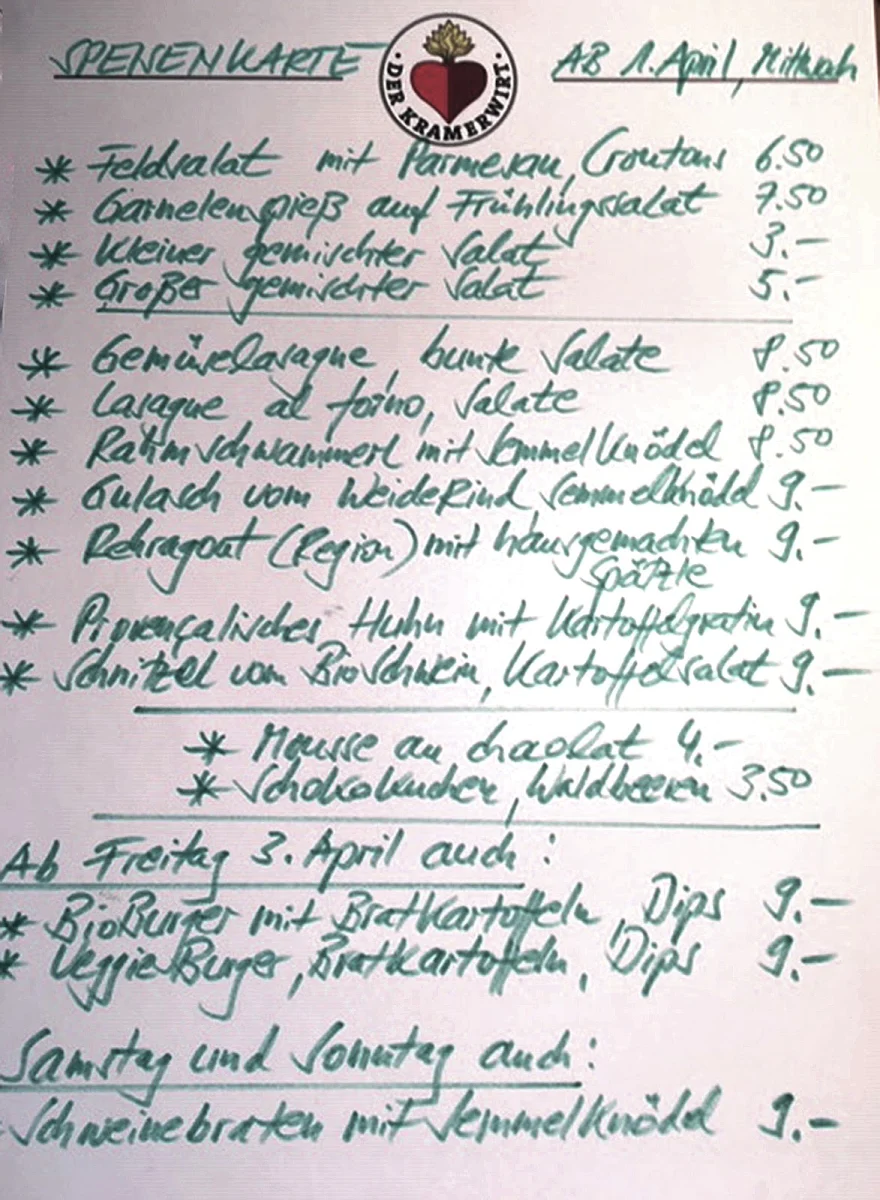 SPEISENKARTE
· DER KRAMERWIRT ·
AB 1. April, Mittwoch
* Feldsalat mit Parmesan, Croutons 6.50
* Garnelenspieß auf Frühlingssalat 7.50
* Kleiner gemischter Salat 3.-
* Großer gemischter Salat 5.-
* Gemüselasagne, bunte Salate 8.50
* Lasagne al forno, Salate 8.50
* Rahmschwammerl mit Semmelknödel 8.50
* Gulasch vom WeideRind Semmelknödel 9.-
* Rehragout (Region) mit hausgemachten 9.-
Spätzle
* Provençalisches Huhn mit Kartoffelgratin 9.-
* Schnitzel vom BioSchwein, Kartoffelsalat 9.-
* Mousse au chaolat 4.-
* Schokokuchen, Waldbeeren 3.50
Ab Freitag 3. April auch:
* BioBurger mit Bratkartoffeln, Dips 9.-
* VeggieBurger, Bratkartoffeln, Dips 9.-
Samstag und Sonntag auch:
Schweinebraten mit Semmelknödel 9.-